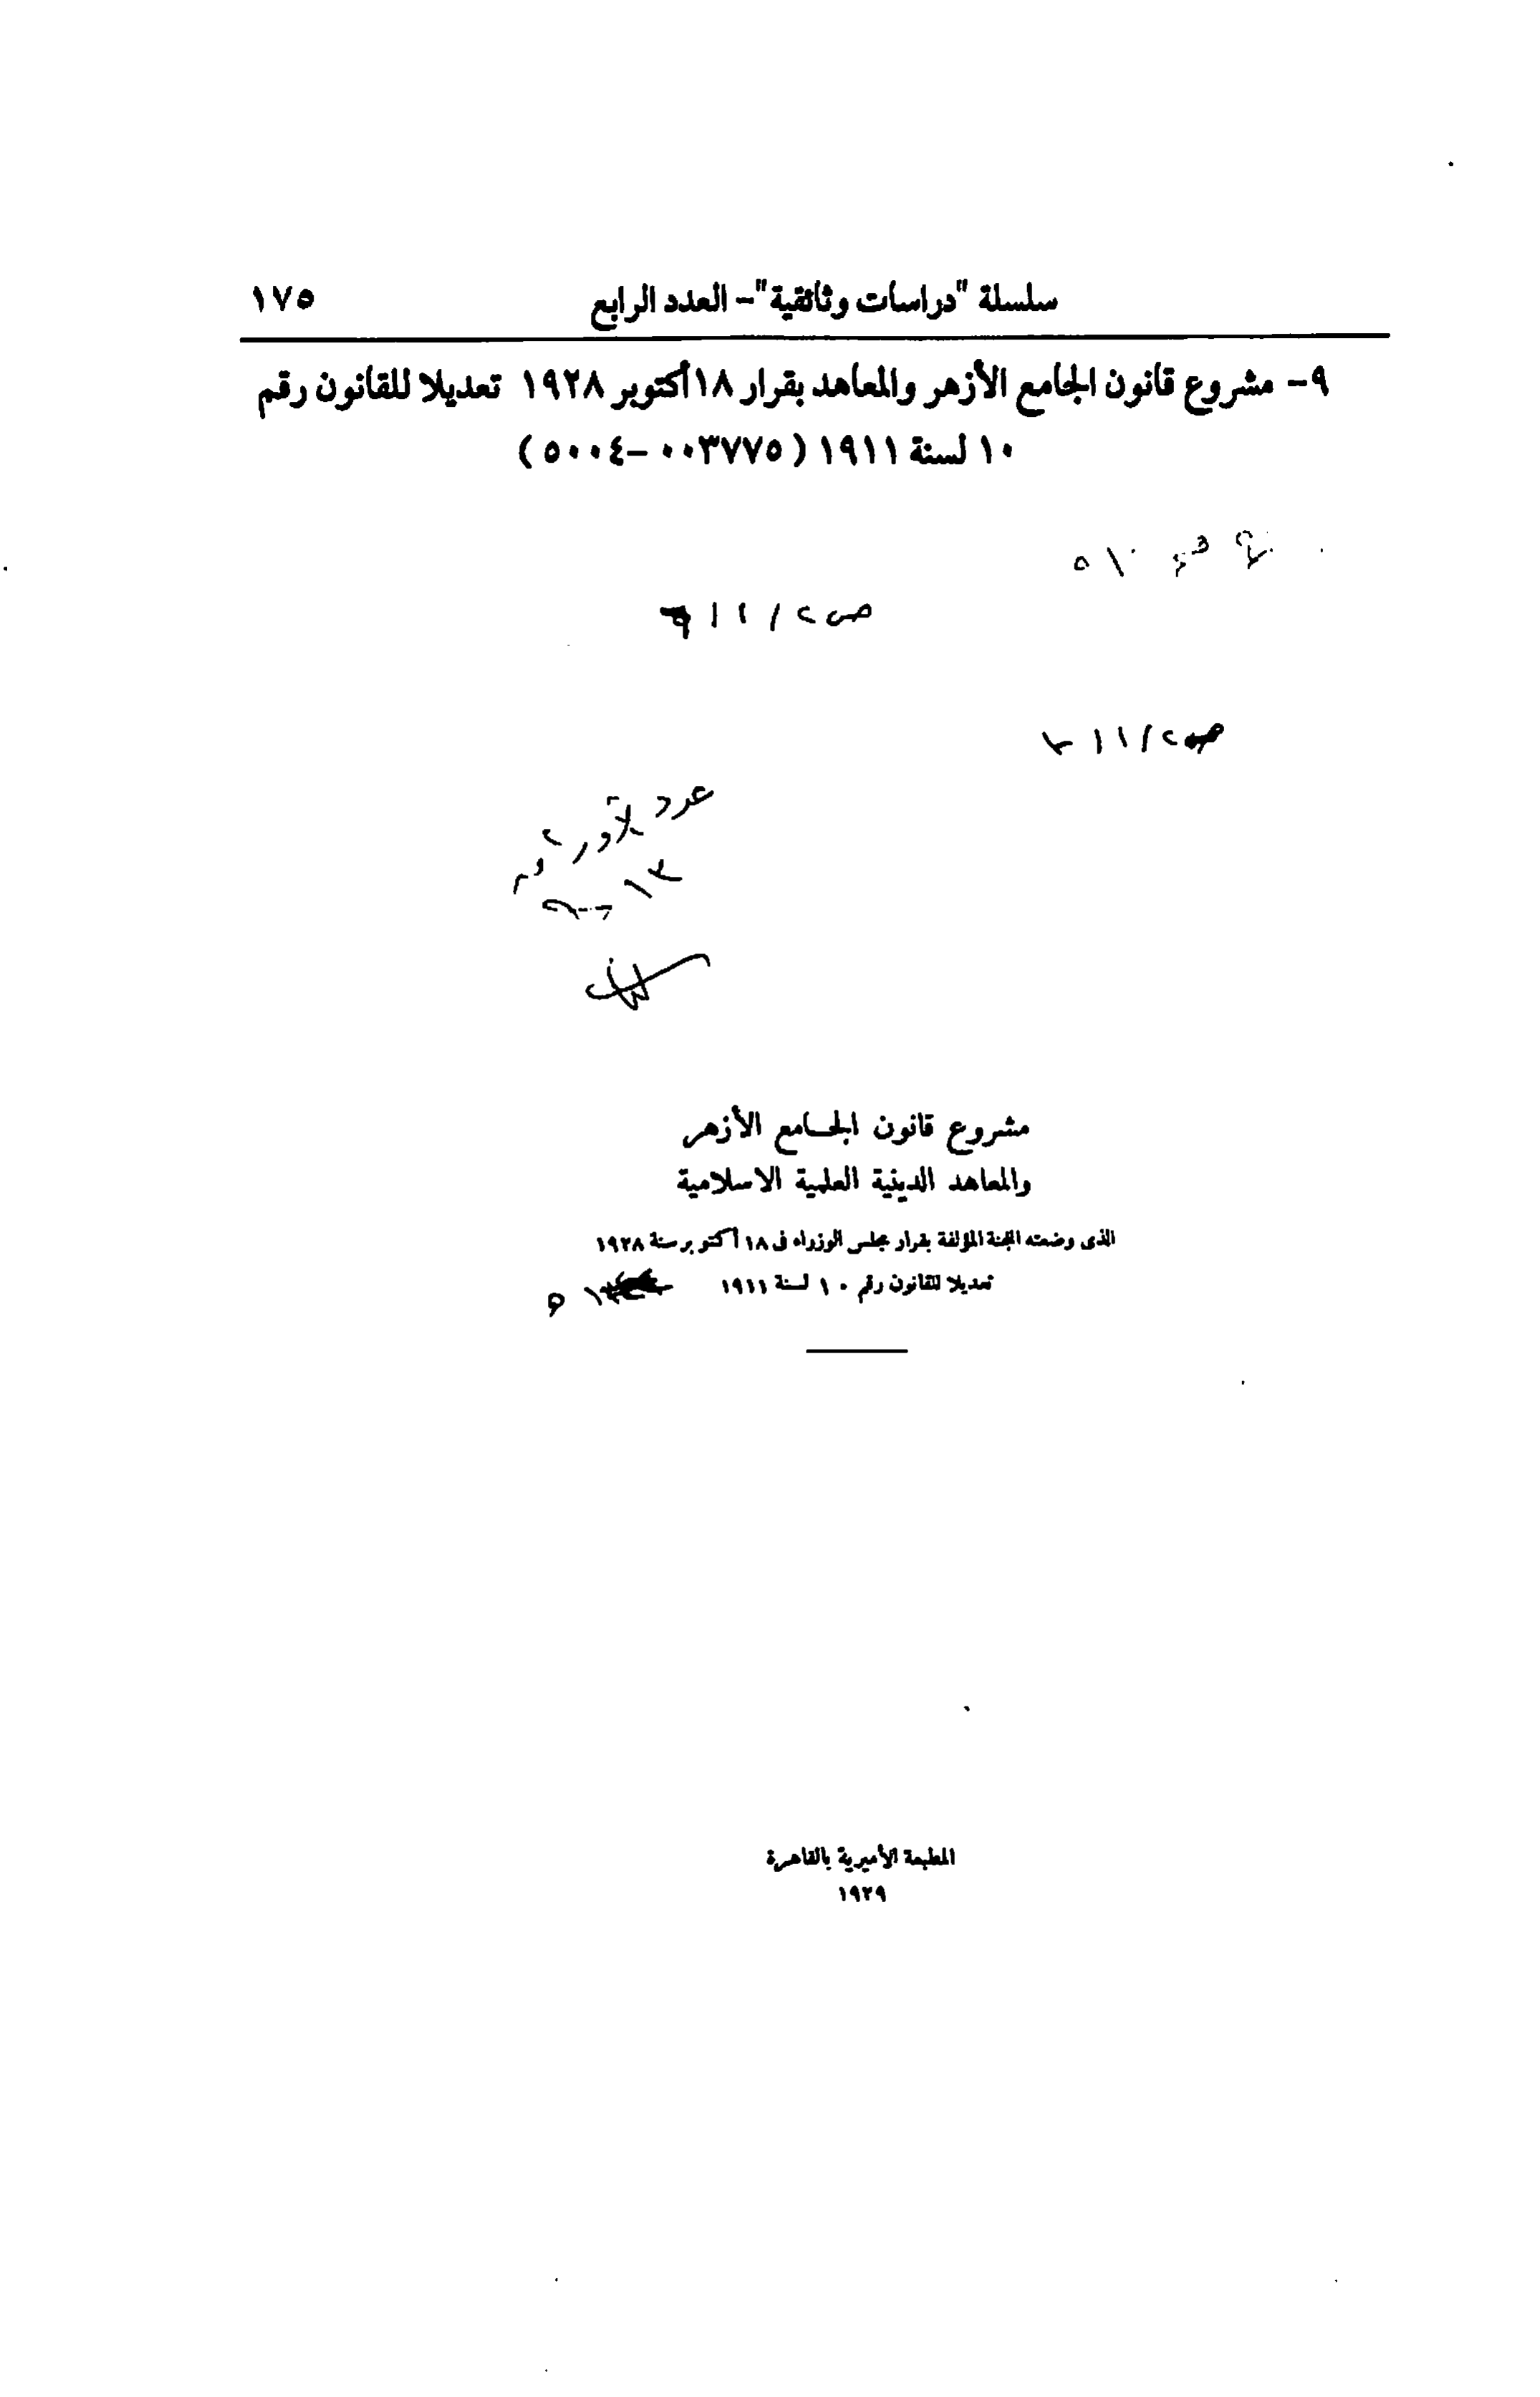 سلسلة "دراسات وثائقية"- العدد الرابع ١٧٥
٩- مشروع قانون الجامع الأزهر والمعاهد بقرار ١٨ أكتوبر ١٩٢٨ تعديلا للقانون رقم
١٠ لسنة ١٩١١ ( ٠٠٣٧٧٥-٥٠٠٤ )
عدد
مشروع قانون الجامع الأزهر
والمعاهد الدينية العلمية الاسلامية
الذى وضعته اللجنة المؤلفة بقرار مجلس الوزراء فى ١٨ أكتوبر سنة ١٩٢٨
تعديلا للقانون رقم ١٠ لسنة ١٩١١
المطبعة الأميرية بالقاهرة
١٩٢٩